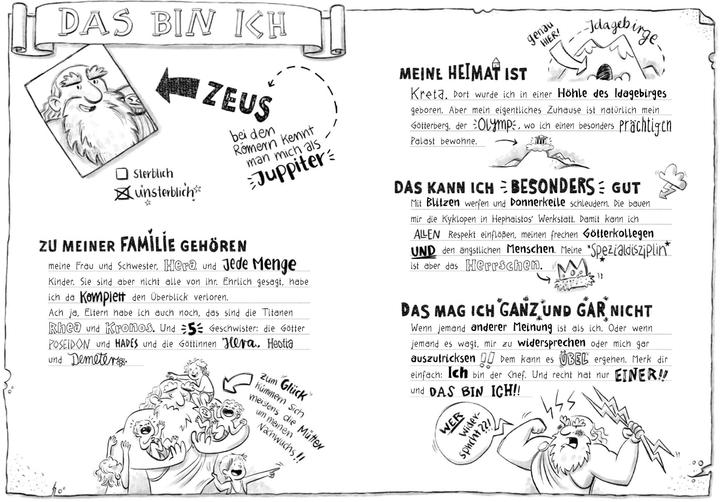 DAS BIN ICH
ZEUS
bei den
Römern kennt
man mich als
Juppiter
Sterblich
Unsterblich
ZU MEINER FAMILIE GEHÖREN
meine Frau und Schwester, Hera und Jede Menge
Kinder. Sie sind aber nicht alle von ihr. Ehrlich gesagt, habe
ich da Komplett den Überblick verloren.
Ach ja, Eltern habe ich auch noch, das sind die Titanen
Rhea und Kronos. Und 5 Geschwister: die Götter
POSEIDON und HADES und die Göttinnen Hera, Hestia
und Demeter.
zum "Glück"
kümmern sich
meistens die Mütter
um meinen
Nachwuchs!!
genau
HIER!
Idagebirge
MEINE HEIMAT IST
Kreta. Dort wurde ich in einer Höhle des Idagebirges
geboren. Aber mein eigentliches Zuhause ist natürlich mein
Götterberg, der Olymp, wo ich einen besonders prächtigen
Palast bewohne.
DAS KANN ICH BESONDERS GUT
Mit Blitzen werfen und Donnerkeile schleudern. Die bauen
mir die Kyklopen in Hephaistos' Werkstatt. Damit kann ich
ALLEN Respekt einflößen, meinen frechen Götterkollegen
UND den ängstlichen Menschen. Meine "Spezialdisziplin"
ist aber das Herrschen.
DAS MAG ICH GANZ UND GAR NICHT
Wenn jemand anderer Meinung ist als ich. Oder wenn
jemand es wagt, mir zu widersprechen oder mich gar
auszutricksen!! Dem kann es ÜBEL ergehen. Merk dir
einfach: Ich bin der Chef. Und recht hat nur EINER!!
und DAS BIN ICH!!
WER
wider-
spricht???